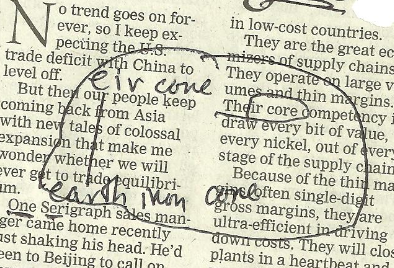 No trend goes on for-
ever, so I keep ex-
pecting the U.S.
trade deficit with China to
level off.
But then our people keep
coming back from Asia
with new tales of colossal
expansion that make me
wonder whether we will
ever get to trade equilibri-
um.
One Serigraph sales man-
ager came home recently
just shaking his head. He'd
been to Beijing to call on
in low-cost countries.
They are the great ec
mizers of supply chains
They operate on large v
umes and thin margins.
Their core competency i
draw every bit of value,
every nickel, out of every
stage of the supply chain
Because of the thin ma
often single-digit
gross margins, they are
ultra-efficient in driving
down costs. They will clos
plants in a heartbeat and
eir cone
earth iron cone